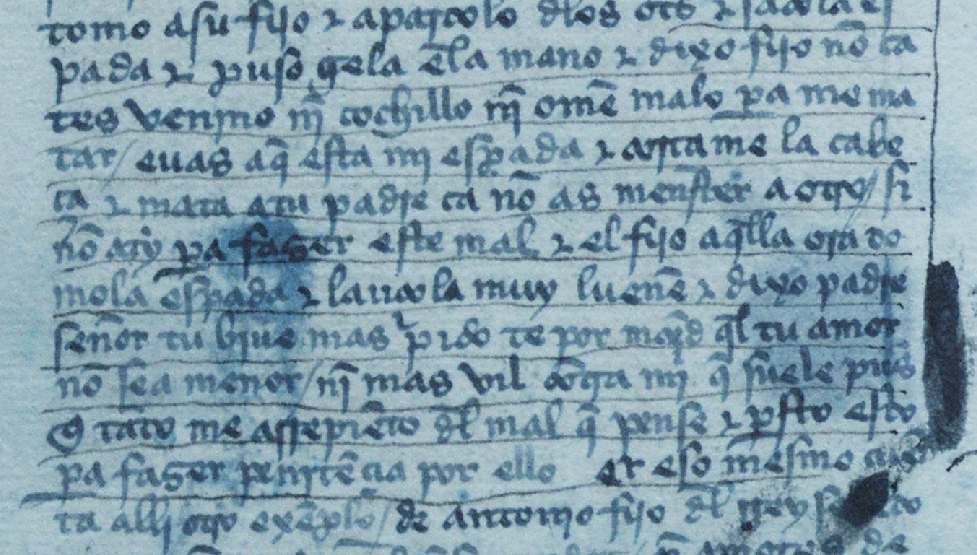 tomo a su fijo ⁊ apartolo dlos ot͠s ⁊
pada ⁊ puso gela ẽla mano ⁊ dixo fijo nõ ca
tes venjno nj̃ cochillo nj̃ ome malo pa me ma
tar / euas aq̃ esta mi espada ⁊ corta me la cabe
ça ⁊ mata a tu padre ca nõ as menester a otro / si
nõ a ty pa fazer este mal ⁊ el fijo aq̃lla ora to
mo la espada ⁊ lançola muy luene ⁊ dixo padre
señor tu biue mas pido te por mrçd q̃l tu amor
nõ sea menor / nj̃ mas vil cõtra mi q̃ suele pues
q̃ tãto me arrepiẽto dl mal q̃ pense ⁊ psto esto
pa fazer penitẽcia por ello et eso mesmo
ta alli otro exẽplo / de antonio fijo dl rey